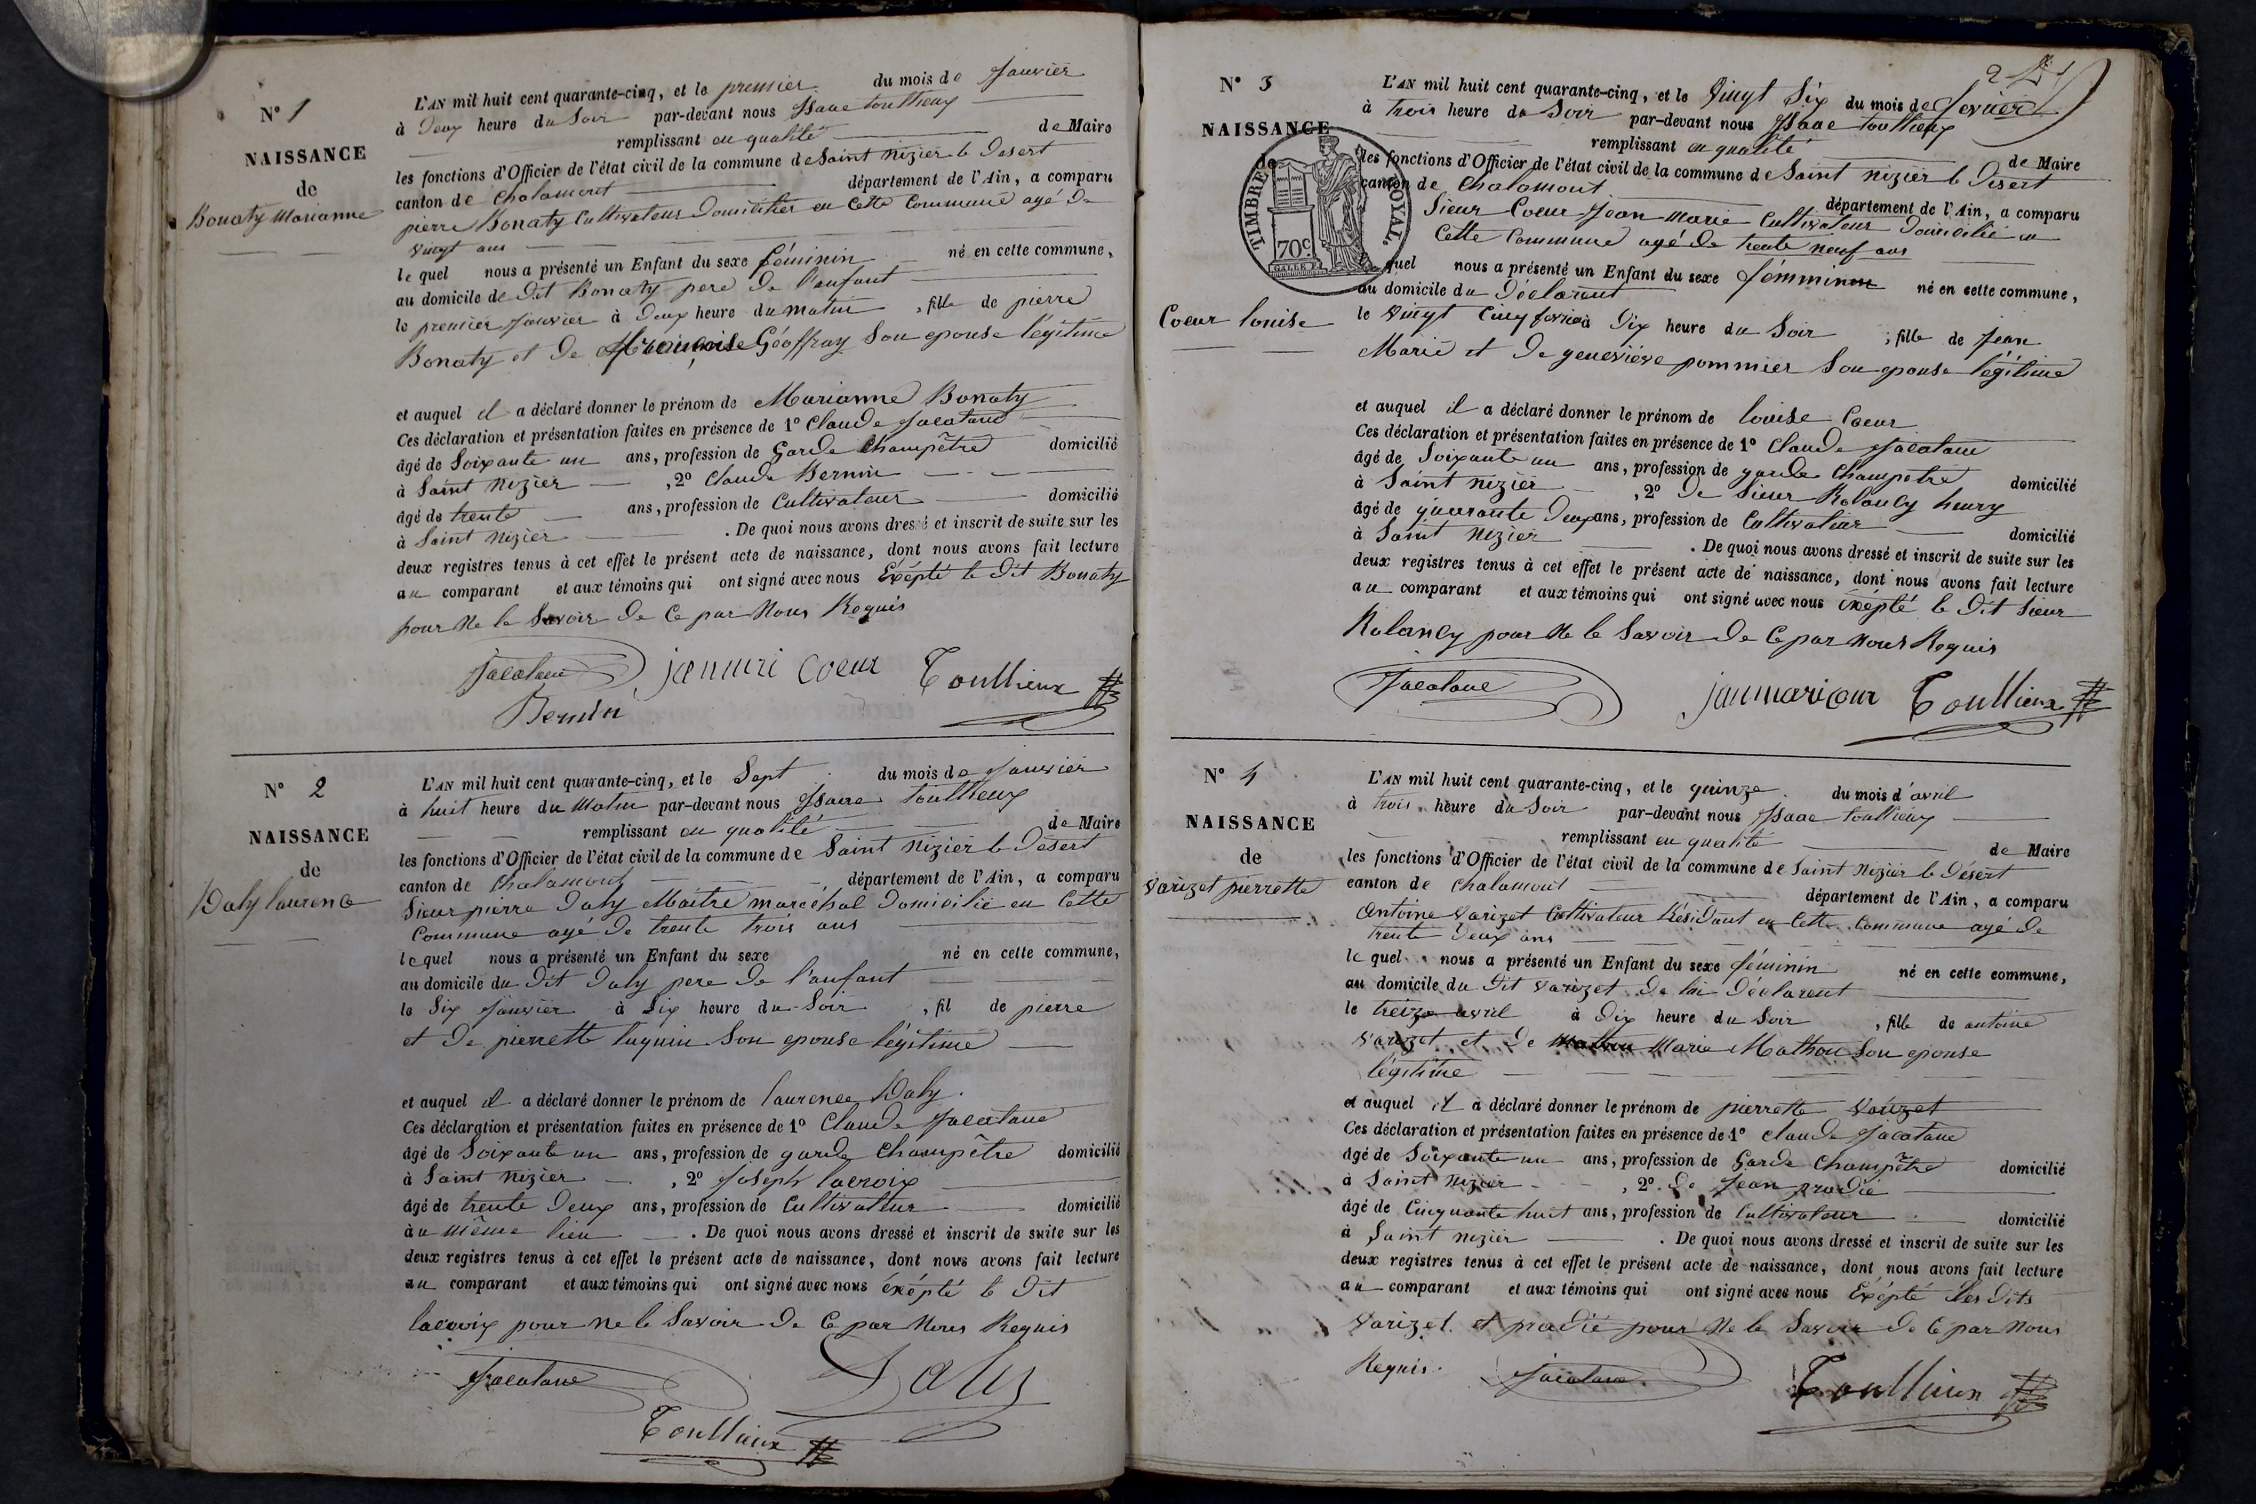 N° 1
NAISSANCE
de
Bonaty Marianne
L'AN mil huit cent quarante-cinq, et le premier du mois de Janvier
à Deux heure du Soir par-devant nous Isaac toullieux
remplissant en qualité de Maire
les fonctions d'Officier de l'état civil de la commune de Saint Nizier le Desert
canton de Chalamont département de l'Ain, a comparu
pierre Bonaty Cultivateur Domicilier en Cette Commune agé De
vingt ans
le quel nous a présenté un Enfant du sexe féminin né en cette commune,
au domicile de Dit Bonaty pere De l'anfant
le premier Janvier à Deux heure du matin , fille de pierre
Bonaty et De Françoise Géoffray Son epouse légitime
et auquel il a déclaré donner le prénom de Marianne Bonaty
Ces déclaration et présentation faites en présence de 1° Claude Jacatane
âgé de Soixante un ans, profession de Garde Champêtre domicilié
à Saint Nizier , 2° Claude Bernin
âgé de trente ans, profession de Cultivateur domicilié
à Saint Nizier . De quoi nous avons dressé et inscrit de suite sur les
deux registres tenus à cet effet le présent acte de naissance, dont nous avons fait lecture
au comparant et aux témoins qui ont signé avec nous Exépté le Dit Bonaty
pour Ne le Savoir De Ce par Nous Requis
Jacatane janmari coeur Toullieux
Bernin
N° 2
NAISSANCE
de
Daly laurence
L'AN mil huit cent quarante-cinq, et le Sept du mois de Janvier
à huit heure du Matin par-devant nous Isaac toullieux
remplissant en qualité de Maire
les fonctions d'Officier de l'état civil de la commune de Saint Nizier le Désert
canton de Chalamont département de l'Ain, a comparu
Sieur pierre Daly Maitre maréchal Domicilié en Cette
Commune agé De trente trois ans
lequel nous a présenté un Enfant du sexe né en cette commune,
au domicile du Dit Daly pere De l'anfant
le Six Janvier à Six heure du Soir , fil de pierre
et De pierrette luquin Son epouse légitime
et auquel il a déclaré donner le prénom de laurence Daly.
Ces déclaration et présentation faites en présence de 1° Claude Jacatane
âgé de Soixante un ans, profession de garde Champêtre domicilié
à Saint Nizier , 2° Joseph lacroix
âgé de trente Deux ans, profession de Cultivateur domicilié
au même lieu . De quoi nous avons dressé et inscrit de suite sur les
deux registres tenus à cet effet le présent acte de naissance, dont nous avons fait lecture
au comparant et aux témoins qui ont signé avec nous éxépté le Dit
lacroix pour Ne le Savoir De Ce par Nous Requis
Jacatane Daly
Toullieux
N° 3
NAISSANCE
de
TIMBRE ROYAL.
70c
Coeur louise
L'AN mil huit cent quarante-cinq, et le Vingt Six du mois de fevrier
à trois heure du Soir par-devant nous Isaac toullieux
remplissant en qualité de Maire
les fonctions d'Officier de l'état civil de la commune de Saint Nizier le Désert
canton de Chalamont département de l'Ain, a comparu
Sieur Coeur Jean Marie Cultivateur Domicilié en
Cette Commune agé De trente neuf ans
le quel nous a présenté un Enfant du sexe fémminin né en cette commune,
au domicile du Déclarant
le Vingt Cinq fevrier à Dix heure du Soir , fille de Jean
Marie et De geneviève pommier Son epouse légitime
et auquel il a déclaré donner le prénom de louise Coeur
Ces déclaration et présentation faites en présence de 1° Claude Jacatane
âgé de Soixante un ans, profession de garde Champêtre domicilié
à Saint Nizier , 2° De Sieur Rolancy henry
âgé de quarante Deux ans, profession de Cultivateur domicilié
à Saint Nizier . De quoi nous avons dressé et inscrit de suite sur les
deux registres tenus à cet effet le présent acte de naissance, dont nous avons fait lecture
au comparant et aux témoins qui ont signé avec nous éxépté le Dit Sieur
Rolancy pour Ne le Savoir De Ce par Nous Requis
Jacatane janmaricoeur Toullieux
N° 4
NAISSANCE
de
Varizet pierrette
L'AN mil huit cent quarante-cinq, et le quinze du mois d'avril
à trois heure du Soir par-devant nous Isaac toullieux
remplissant en qualité de Maire
les fonctions d'Officier de l'état civil de la commune de Saint Nizier le Désert
canton de Chalamont département de l'Ain, a comparu
Antoine Varizet Cultivateur Résidant en Cette Commune agé De
trente Deux ans
le quel nous a présenté un Enfant du sexe féminin né en cette commune,
au domicile du Dit Varizet De lui Déclarent
le treize avril à Dix heure du Soir , fille de antoine
Varizet et De Marie Mathon Son epouse
légitime
et auquel il a déclaré donner le prénom de pierrette Varizet
Ces déclaration et présentation faites en présence de 1° Claude Jacatane
âgé de Soixante un ans, profession de Garde Champêtre domicilié
à Saint Nizier , 2° De Jean prodié
âgé de Cinquante huit ans, profession de Cultivateur domicilié
à Saint Nizier . De quoi nous avons dressé et inscrit de suite sur les
deux registres tenus à cet effet le présent acte de naissance, dont nous avons fait lecture
au comparant et aux témoins qui ont signé avec nous Exépté les Dits
Varizet et prodié pour Ne le Savoir De Ce par Nous
Requis. Jacatane Toullieux